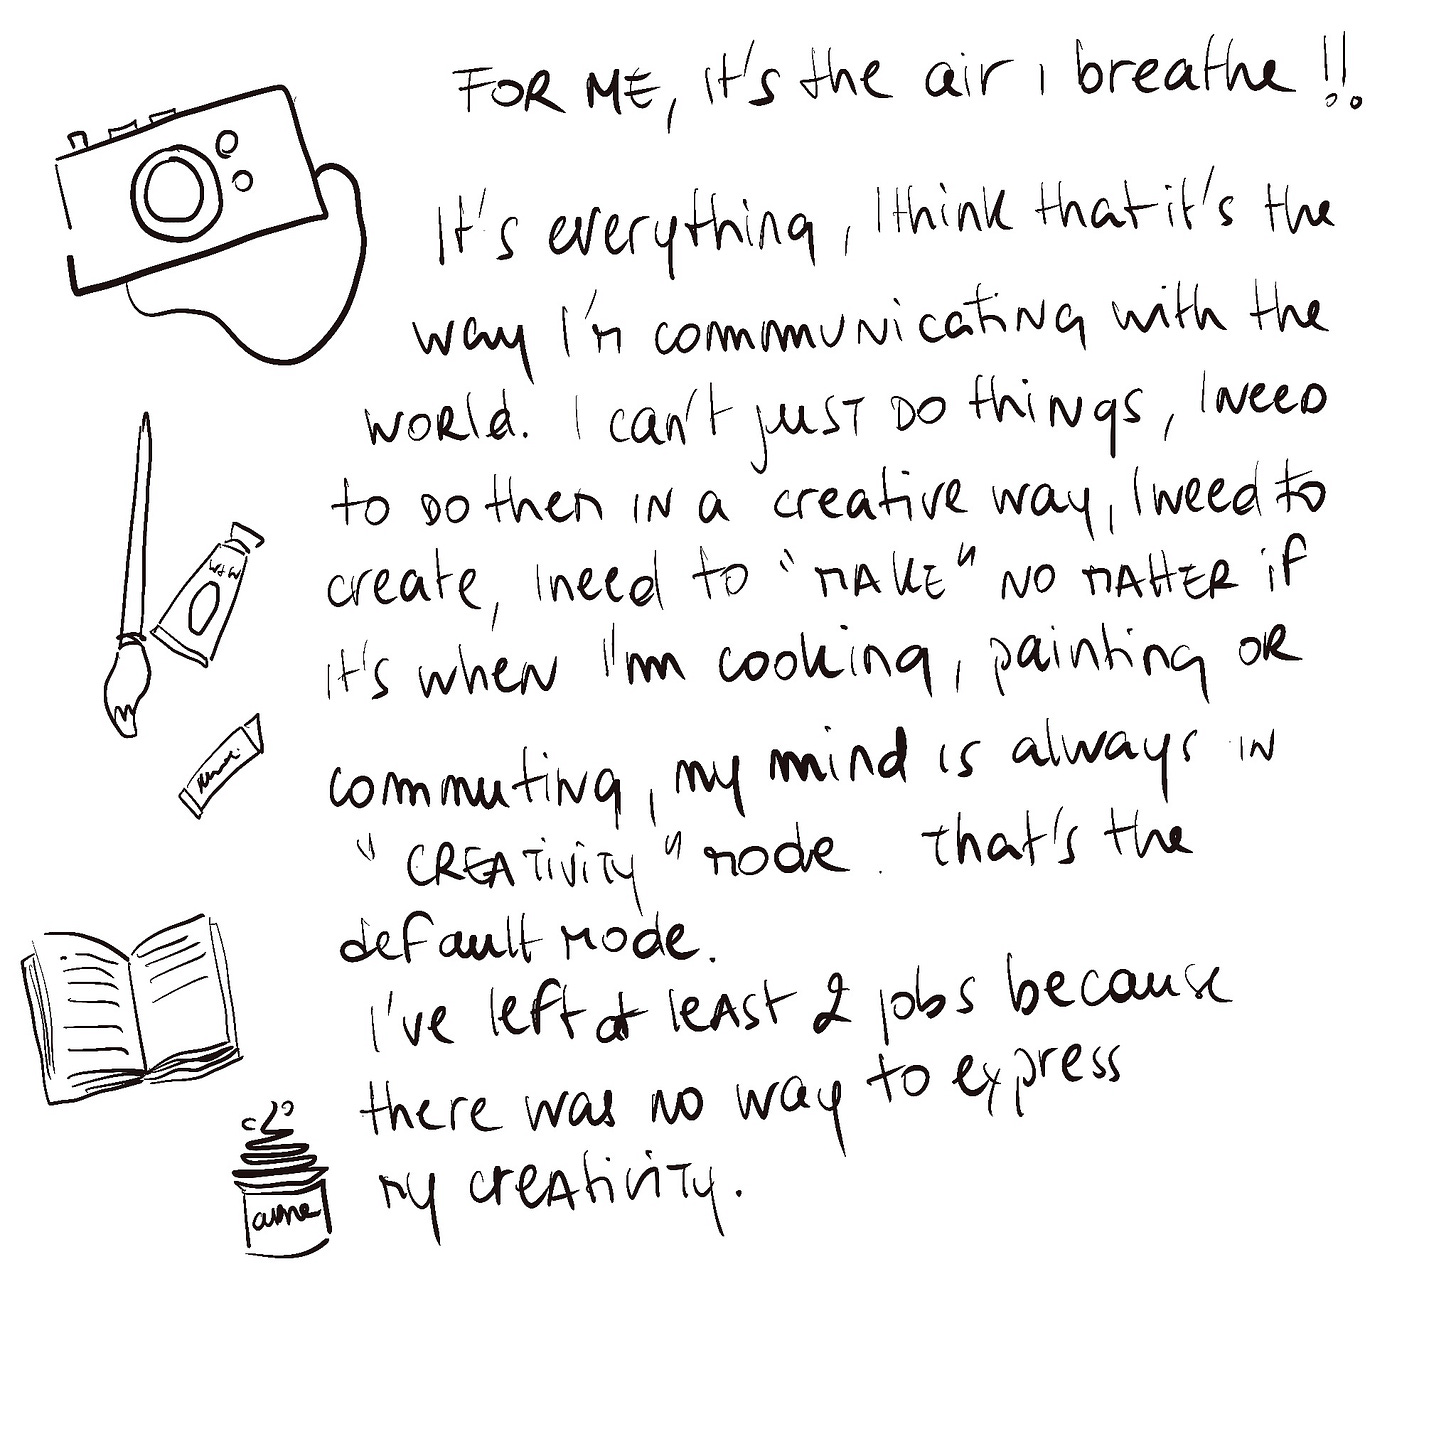 FOR ME, it's the air i breathe !!
It's everything, I think that it's the
way I'm communicating with the
world. I can't just DO things, I NEED
to DO them IN a creative way, I need to
create, I need to "MAKE" NO MATTER if
it's when I'm cooking, painting OR
commuting, my mind is always IN
"CREATIVITY" mode. That's the
default mode.
I've left at least 2 jobs because
there was no way to express
my creativity.
W&N
acme